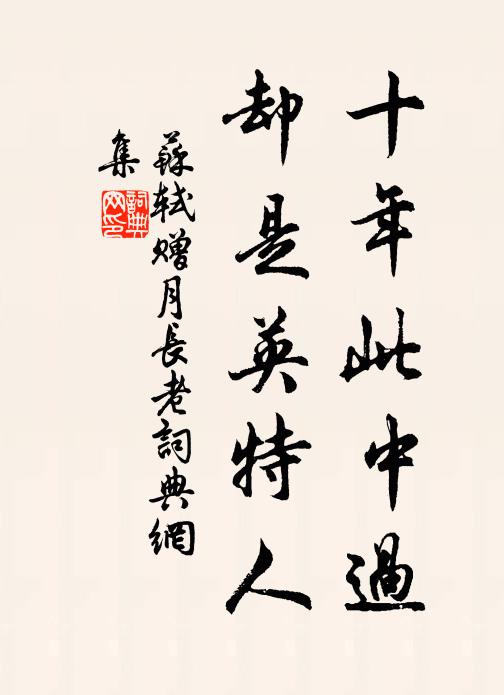 十年此中過
却是英特人
蘇軾贈月長老詞典網
集
詞典
网印